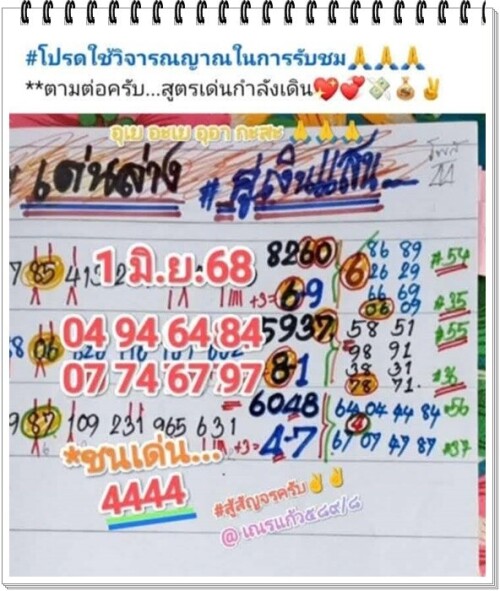 #โปรดใช้วิจารณญาณในการรับชม🙏🙏🙏
**ตามต่อครับ...สูตรเด่นกำลังเดิน💖💕💸💰✌
อุเย อะเย อุอา กะสะ 🙏🙏🙏
# เด่นล่าง # สู่เงินแสน
1 มิ.ย.68
8260 6 86 89 #54
26 29
+3= 69 66 69
06 09 #35
04 94 64 84
5937 58 51 #55
98 91
07 74 67 97
81 38 31 #36
78 71
6048 64 04 44 84 #56
9 87 109 231 965 631
+3= 4-7 67 07 47 87 #37
*ชนเด่น...
4444
#สู้สัญจรครับ✌✌
@เณรแก้ว๕๘๙/๘